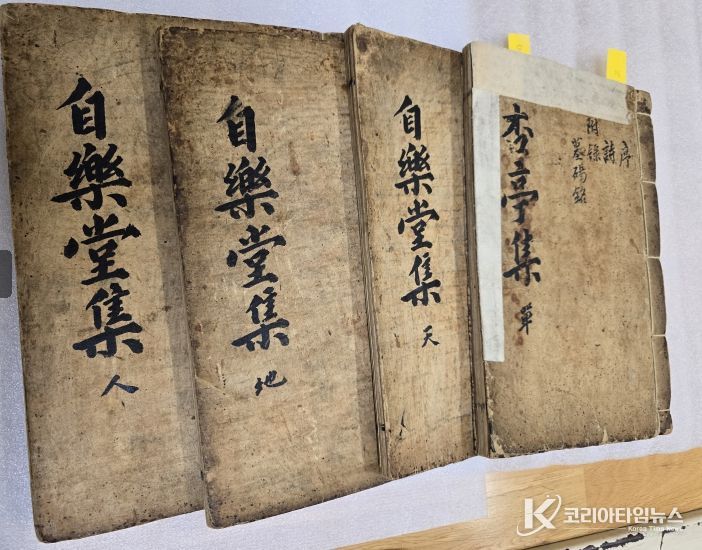 序
詩
附錄
墓碣銘
杏亭集 單
自樂堂集 天
自樂堂集 地
自樂堂集 人
코리아타임뉴스
Korea Time News